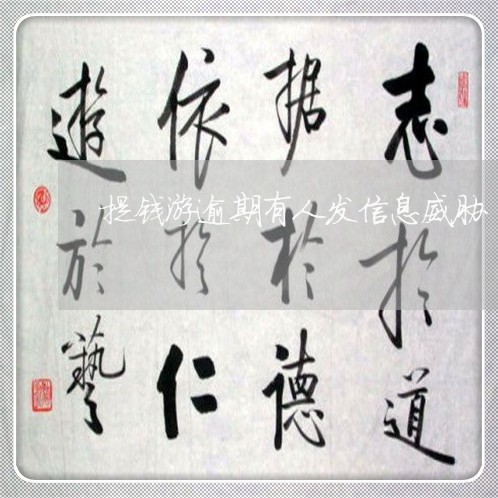 志於道
据於德
依於仁
遊於藝
提钱游逾期有人发信息威胁